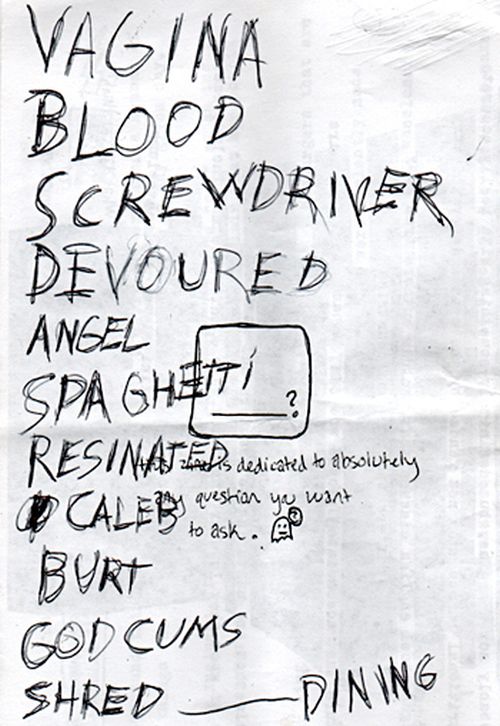 VAGINA
BLOOD
SCREWDRIVER
DEVOURED
ANGEL
SPAGHETTI
?
RESINATED
this zine is dedicated to absolutely
CALEB
any question you want
to ask.
?
BURT
GOD CUMS
SHRED DINING